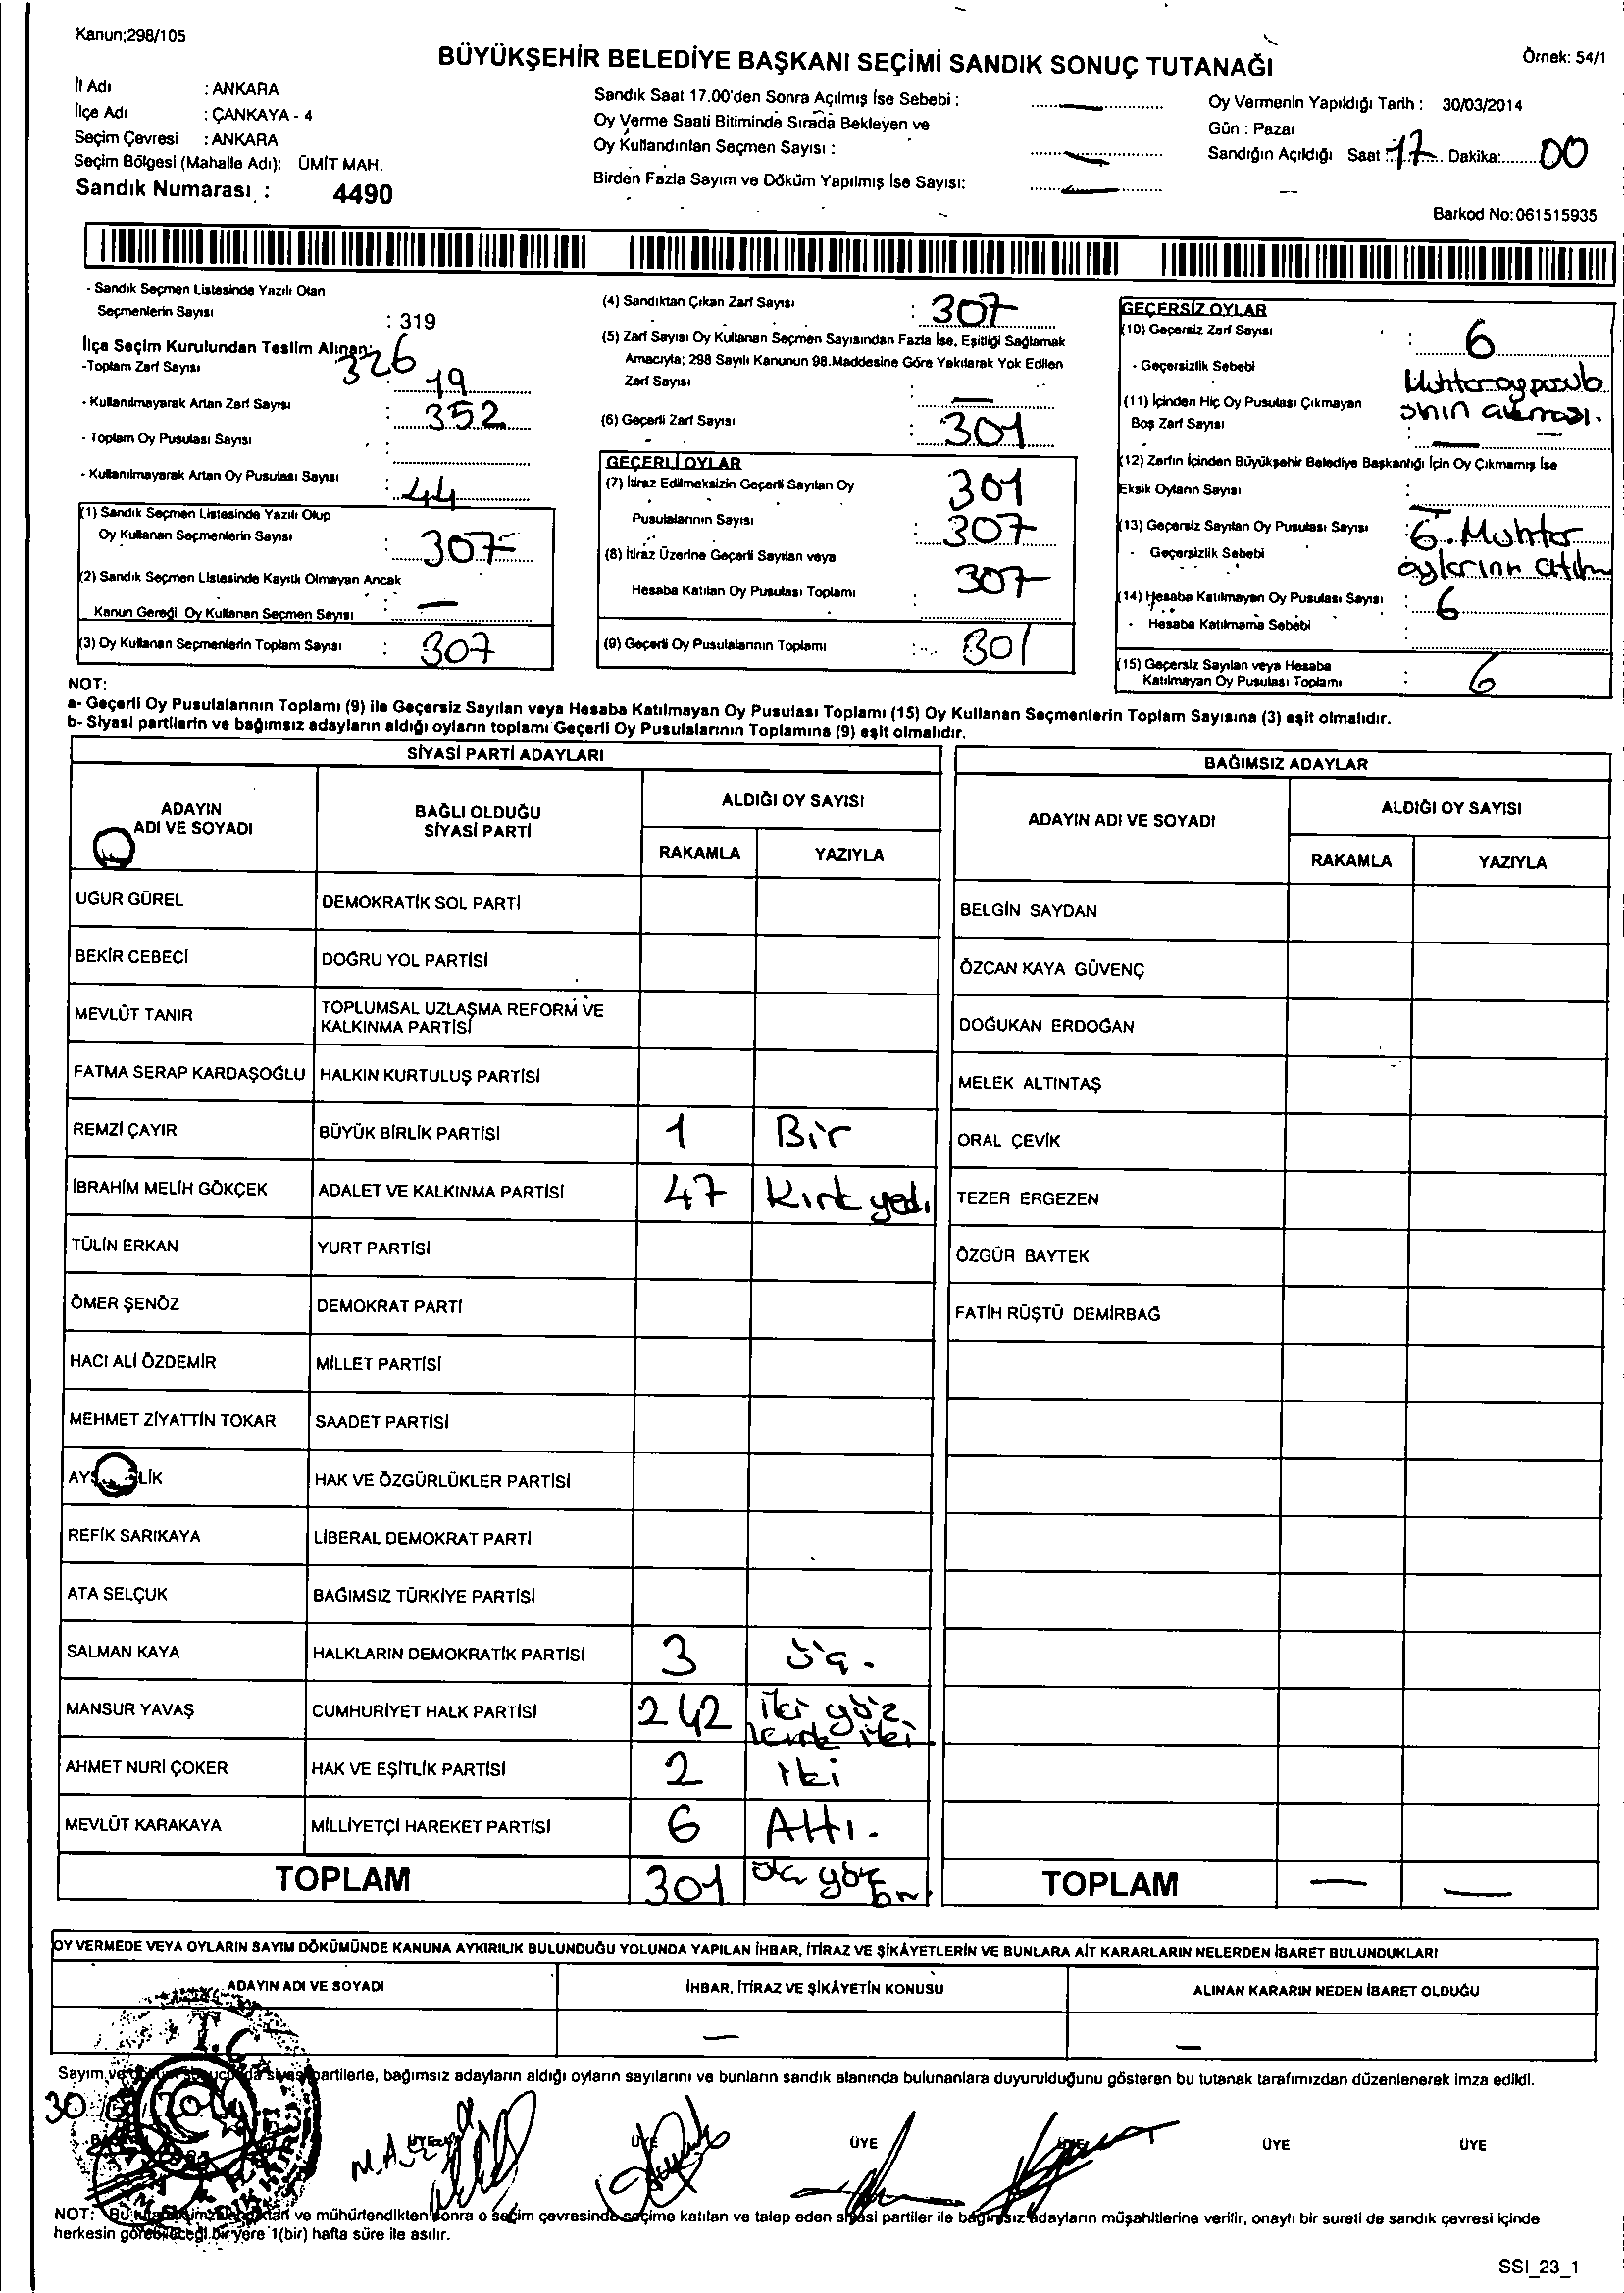 Kanun;298/105
BÜYÜKŞEHİR BELEDİYE BAŞKANI SEÇİMİ SANDIK SONUÇ TUTANAĞI
Örnek: 54/1
İl Adı : ANKARA
İlçe Adı : ÇANKAYA - 4
Seçim Çevresi : ANKARA
Seçim Bölgesi (Mahalle Adı): ÜMİT MAH.
Sandık Numarası : 4490
Sandık Saat 17.00'den Sonra Açılmış İse Sebebi :
Oy Verme Saati Bitiminde Sırada Bekleyen ve
Oy Kullandırılan Seçmen Sayısı :
Birden Fazla Sayım ve Döküm Yapılmış İse Sayısı:
Oy Vermenin Yapıldığı Tarih : 30/03/2014
Gün : Pazar
Sandığın Açıldığı Saat : 17 Dakika: 00
Barkod No:061515935
- Sandık Seçmen Listesinde Yazılı Olan
Seçmenlerin Sayısı : 319
İlçe Seçim Kurulundan Teslim Alınan;
-Toplam Zarf Sayısı 326
19
- Kullanılmayarak Artan Zarf Sayısı : 352
- Toplam Oy Pusulası Sayısı :
- Kullanılmayarak Artan Oy Pusulası Sayısı : 44
(1) Sandık Seçmen Listesinde Yazılı Olup
Oy Kullanan Seçmenlerin Sayısı : 307
(2) Sandık Seçmen Listesinde Kayıtlı Olmayan Ancak
Kanun Gereği Oy Kullanan Seçmen Sayısı : —
(3) Oy Kullanan Seçmenlerin Toplam Sayısı : 307
(4) Sandıktan Çıkan Zarf Sayısı : 307
(5) Zarf Sayısı Oy Kullanan Seçmen Sayısından Fazla İse, Eşitliği Sağlamak
Amacıyla; 298 Sayılı Kanunun 98.Maddesine Göre Yakılarak Yok Edilen
Zarf Sayısı : —
(6) Geçerli Zarf Sayısı : 301
GEÇERLİ OYLAR
(7) İtiraz Edilmeksizin Geçerli Sayılan Oy 301
Pusulalarının Sayısı : 307
(8) İtiraz Üzerine Geçerli Sayılan veya
Hesaba Katılan Oy Pusulası Toplamı : 307
(9) Geçerli Oy Pusulalarının Toplamı : 301
GEÇERSİZ OYLAR
(10) Geçersiz Zarf Sayısı : 6
- Geçersizlik Sebebi Muhtar oy pusula
(11) İçinden Hiç Oy Pusulası Çıkmayan sının
Boş Zarf Sayısı : —
(12) Zarfın İçinden Büyükşehir Belediye Başkanlığı İçin Oy Çıkmamış İse
Eksik Oyların Sayısı : —
(13) Geçersiz Sayılan Oy Pusulası Sayısı : 6. Muhtar
- Geçersizlik Sebebi oylarının
(14) Hesaba Katılmayan Oy Pusulası Sayısı : 6
- Hesaba Katılmama Sebebi :
(15) Geçersiz Sayılan veya Hesaba
Katılmayan Oy Pusulası Toplamı : 6
NOT:
a- Geçerli Oy Pusulalarının Toplamı (9) ile Geçersiz Sayılan veya Hesaba Katılmayan Oy Pusulası Toplamı (15) Oy Kullanan Seçmenlerin Toplam Sayısına (3) eşit olmalıdır.
b- Siyasi partilerin ve bağımsız adayların aldığı oyların toplamı Geçerli Oy Pusulalarının Toplamına (9) eşit olmalıdır.
SİYASİ PARTİ ADAYLARI
BAĞIMSIZ ADAYLAR
ADAYIN ADI VE SOYADI
BAĞLI OLDUĞU SİYASİ PARTİ
ALDIĞI OY SAYISI
RAKAMLA YAZIYLA
ADAYIN ADI VE SOYADI
ALDIĞI OY SAYISI
RAKAMLA YAZIYLA
UĞUR GÜREL DEMOKRATİK SOL PARTİ BELGİN SAYDAN
BEKİR CEBECİ DOĞRU YOL PARTİSİ ÖZCAN KAYA GÜVENÇ
MEVLÜT TANIR TOPLUMSAL UZLAŞMA REFORM VE KALKINMA PARTİSİ DOĞUKAN ERDOĞAN
FATMA SERAP KARDAŞOĞLU HALKIN KURTULUŞ PARTİSİ MELEK ALTINTAŞ
REMZİ ÇAYIR BÜYÜK BİRLİK PARTİSİ 1 Bir ORAL ÇEVİK
İBRAHİM MELİH GÖKÇEK ADALET VE KALKINMA PARTİSİ 47 Kırk yedi TEZER ERGEZEN
TÜLİN ERKAN YURT PARTİSİ ÖZGÜR BAYTEK
ÖMER ŞENÖZ DEMOKRAT PARTİ FATİH RÜŞTÜ DEMİRBAĞ
HACI ALİ ÖZDEMİR MİLLET PARTİSİ
MEHMET ZİYATTİN TOKAR SAADET PARTİSİ
HAK VE ÖZGÜRLÜKLER PARTİSİ
REFİK SARIKAYA LİBERAL DEMOKRAT PARTİ
ATA SELÇUK BAĞIMSIZ TÜRKİYE PARTİSİ
SALMAN KAYA HALKLARIN DEMOKRATİK PARTİSİ 3 üç.
MANSUR YAVAŞ CUMHURİYET HALK PARTİSİ 242 iki yüz kırk iki
AHMET NURİ ÇOKER HAK VE EŞİTLİK PARTİSİ 2 iki
MEVLÜT KARAKAYA MİLLİYETÇİ HAREKET PARTİSİ 6 Altı.
TOPLAM 301 üç yüz bir TOPLAM — —
OY VERMEDE VEYA OYLARIN SAYIM DÖKÜMÜNDE KANUNA AYKIRILIK BULUNDUĞU YOLUNDA YAPILAN İHBAR, İTİRAZ VE ŞİKÂYETLERİN VE BUNLARA AİT KARARLARIN NELERDEN İBARET BULUNDUKLARI
ADAYIN ADI VE SOYADI İHBAR, İTİRAZ VE ŞİKÂYETİN KONUSU ALINAN KARARIN NEDEN İBARET OLDUĞU
— —
T.C.
Sayım partilerle, bağımsız adayların aldığı oyların sayılarını ve bunların sandık alanında bulunanlara duyurulduğunu gösteren bu tutanak tarafımızdan düzenlenerek imza edildi.
30
ÜYE ÜYE ÜYE ÜYE ÜYE ÜYE
NOT: Bu ve mühürlendikten sonra o seçim çevresinde seçime katılan ve talep eden siyasi partiler ile bağımsız adayların müşahitlerine verilir, onaylı bir sureti de sandık çevresi içinde
herkesin görebileceği bir yere 1(bir) hafta süre ile asılır.
SSI_23_1